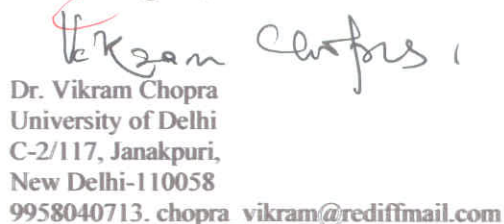 Vikram Chopra
Dr. Vikram Chopra
University of Delhi
C-2/117, Janakpuri,
New Delhi-110058
9958040713. chopra_vikram@rediffmail.com